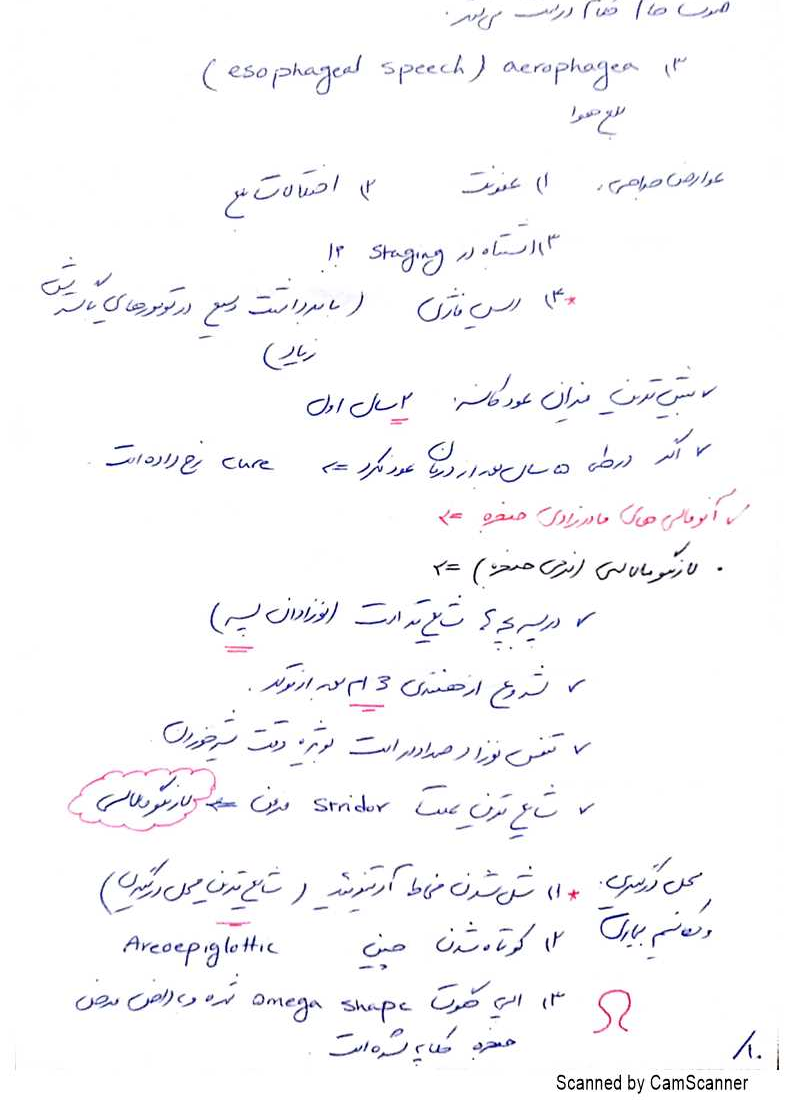 ۳) aerophagea (esophageal speech)
بلع هوا
عوارض جراحی: ۱) عفونت ۲) اختلالات بلع
۳) اشتباه در Staging ؟!
*۴) (با برداشت وسیع در تومورهای با گسترش
زیاد)
✓ بیش ترین میزان عود کانسر: ۲ سال اول
✓ اگر در طی ۵ سال بعد از درمان عود نکرد => cure رخ داده است.
✓ آنومالی های مادرزادی حنجره =>
• لارنگومالاسی (نرمی حنجره) =>
✓ در پسر بچه شایع تر است (نوزادان پسر)
✓ شروع از هفته‌ی 3 ام بعد از تولد.
✓ تنفس نوزاد صدادار است بویژه وقت شیر خوردن.
✓ شایع ترین علت Stridor مزمن <= لارنگومالاسی
محل درگیری: *۱) شل شدن مخاط آریتنوئید (شایع ترین محل درگیری)
و مکانیسم بیماری ۲) کوتاه شدن چین Areoepiglottic
۳) اپی گلوت Omega shape شده و
حنجره شده است.
/۱۰
Scanned by CamScanner